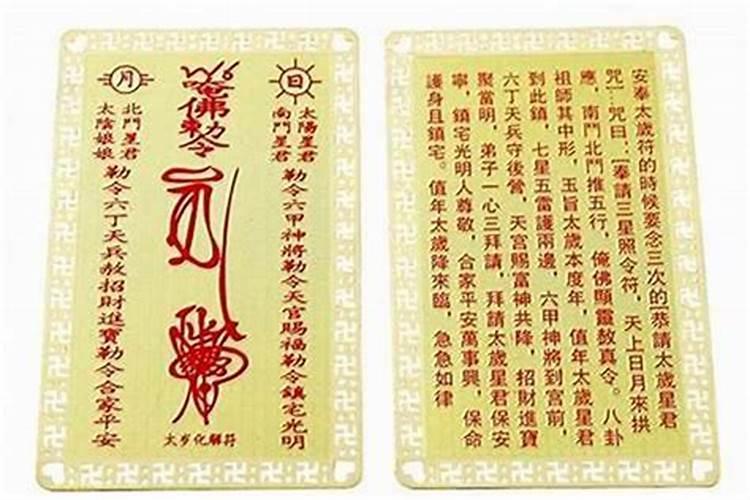 日
太陽星君
南鬥星君
勒令六甲神將勒令天官賜福勒令鎮宅光明
唵佛勅令
月
北鬥星君
太陰娘娘
勒令六丁天兵赦招財進寶勒令合家平安
太岁化解符
安奉太歲符的時候要念三次的[恭請太歲星君
咒]…咒曰:[奉請三星照令符,天上日月來拱
應,南鬥北鬥推五行,俺佛顯靈敖真令。八卦
祖師其中形,玉旨太歲本度年,值年太歲星君
到此鎮,七星五雷護兩邊,六甲神將到宮前,
六丁天兵守後營,天宮賜富神共降,招財進寶
聚當明,弟子一心三拜請,拜請太歲星君保安
寧,鎮宅光明人尊敬,合家平安萬事興,保命
護身且鎮宅。值年太歲降來臨,急急如律